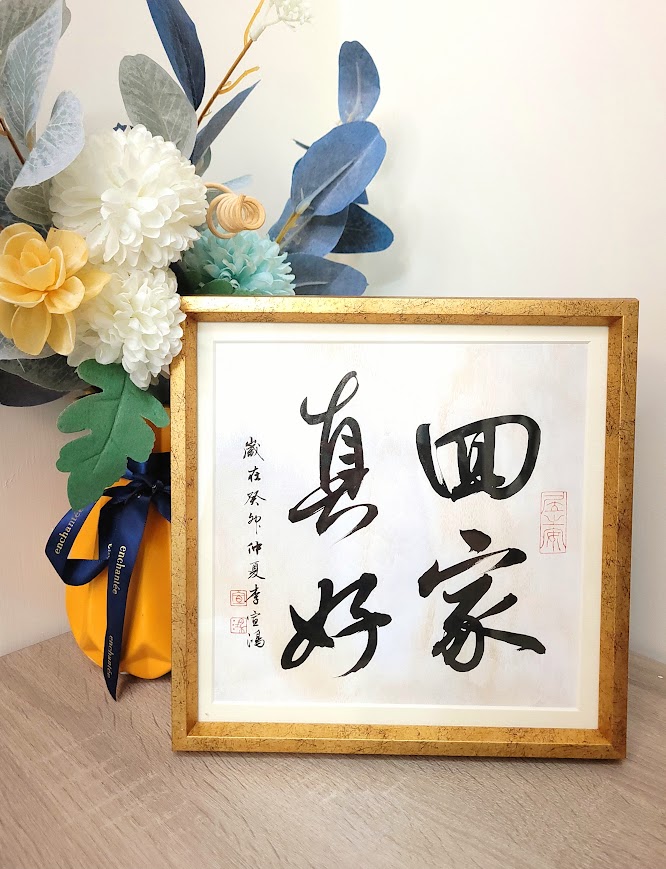 回家
真好
歲在癸卯仲夏李宣鴻
居安
enchantée
enchantée
enchantée